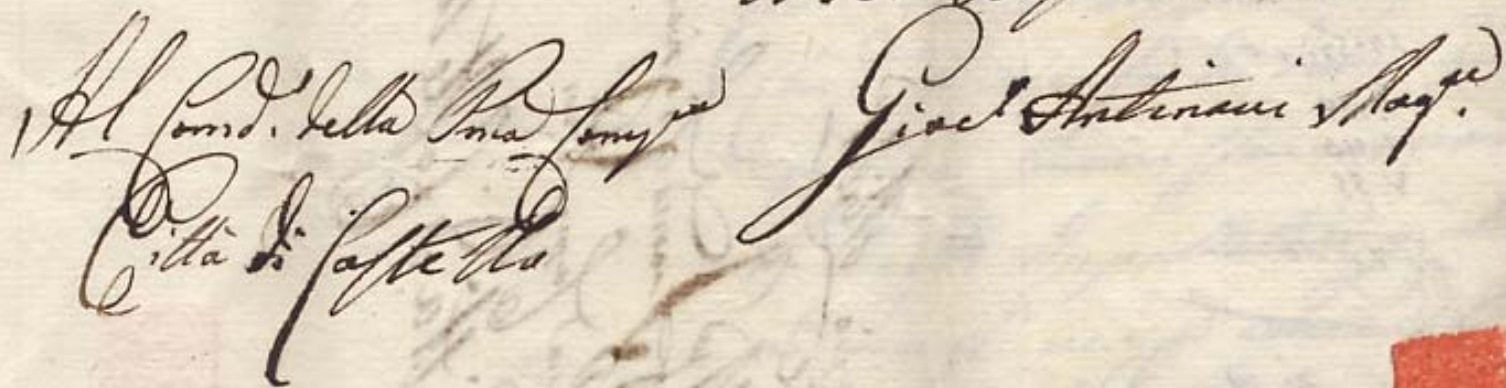 Al Comd.e della Pma Compa
Città di Castello
Antinori Magre.